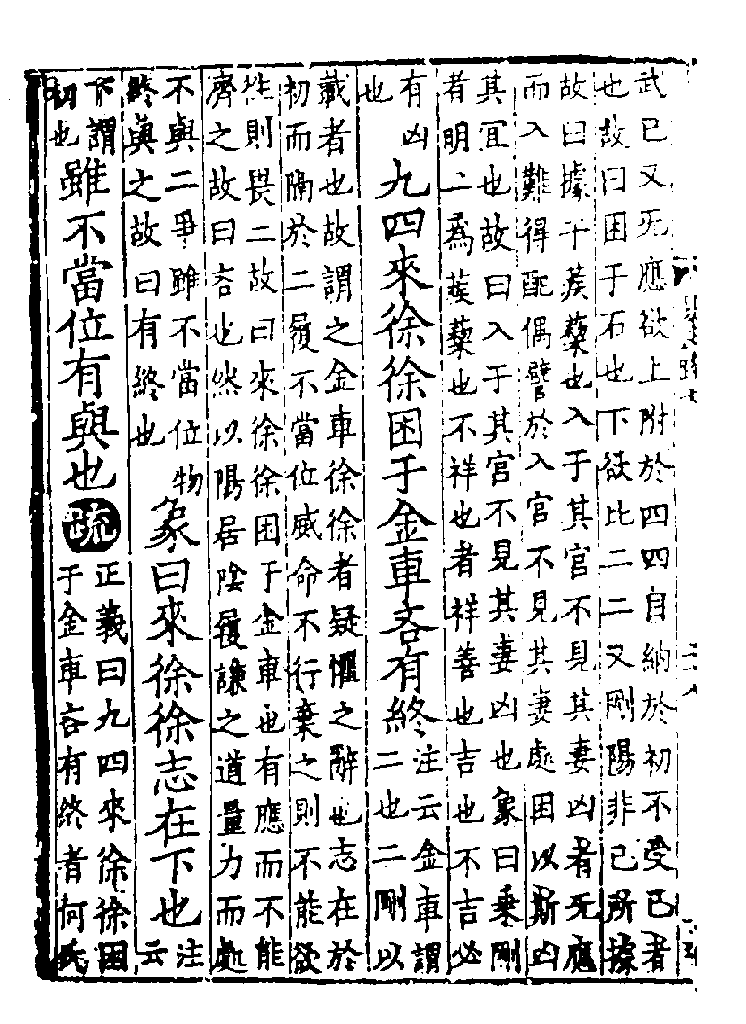 武已又无應欲上附於四四自納於初不受已者
也故曰困于石也下欲比二二又剛陽非已所據
故曰據于蒺藜也入于其官不見其妻凶者无應
而入難得配偶譬於入官不見其妻處困以斯凶
其宜也故曰入于其宮不見其妻凶也象曰乘剛
者明二為蒺藜也不祥也者祥善也吉也不吉必
有凶
也
九四來徐徐困于金車吝有終
注云金車謂
二也二剛以
載者也故謂之金車徐徐者疑懼之辭也志在於
初而隔於二履不當位威命不行棄之則不能欲
往則畏二故曰來徐徐困于金車也有應而不能
濟之故曰吝也然以陽居陰履謙之道量力而處
不與二爭雖不當位物
終與之故曰有終也
象曰來徐徐志在下也
注
云
下謂
初也
雖不當位有與也
疏
正義曰九四來徐徐困
于金車吝有終者何氏